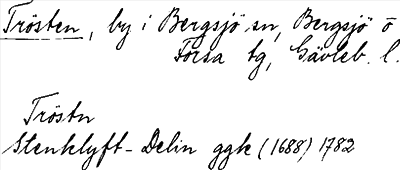 Trösten, by i Bergsjö sn, Bergsjö o
Forsa tg, Gävleb. l.
Tröstn
Stenklyft-Delin ggk (1688) 1782